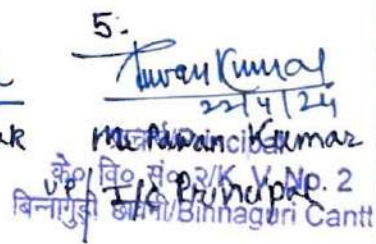 5.
Pawan Kumar
22/4/24
Mr Pawan Kumar
VP / I/C Principal
के० वि० सं० 2/K. V. No. 2
बिन्नागुड़ी छावनी/Binnaguri Cantt